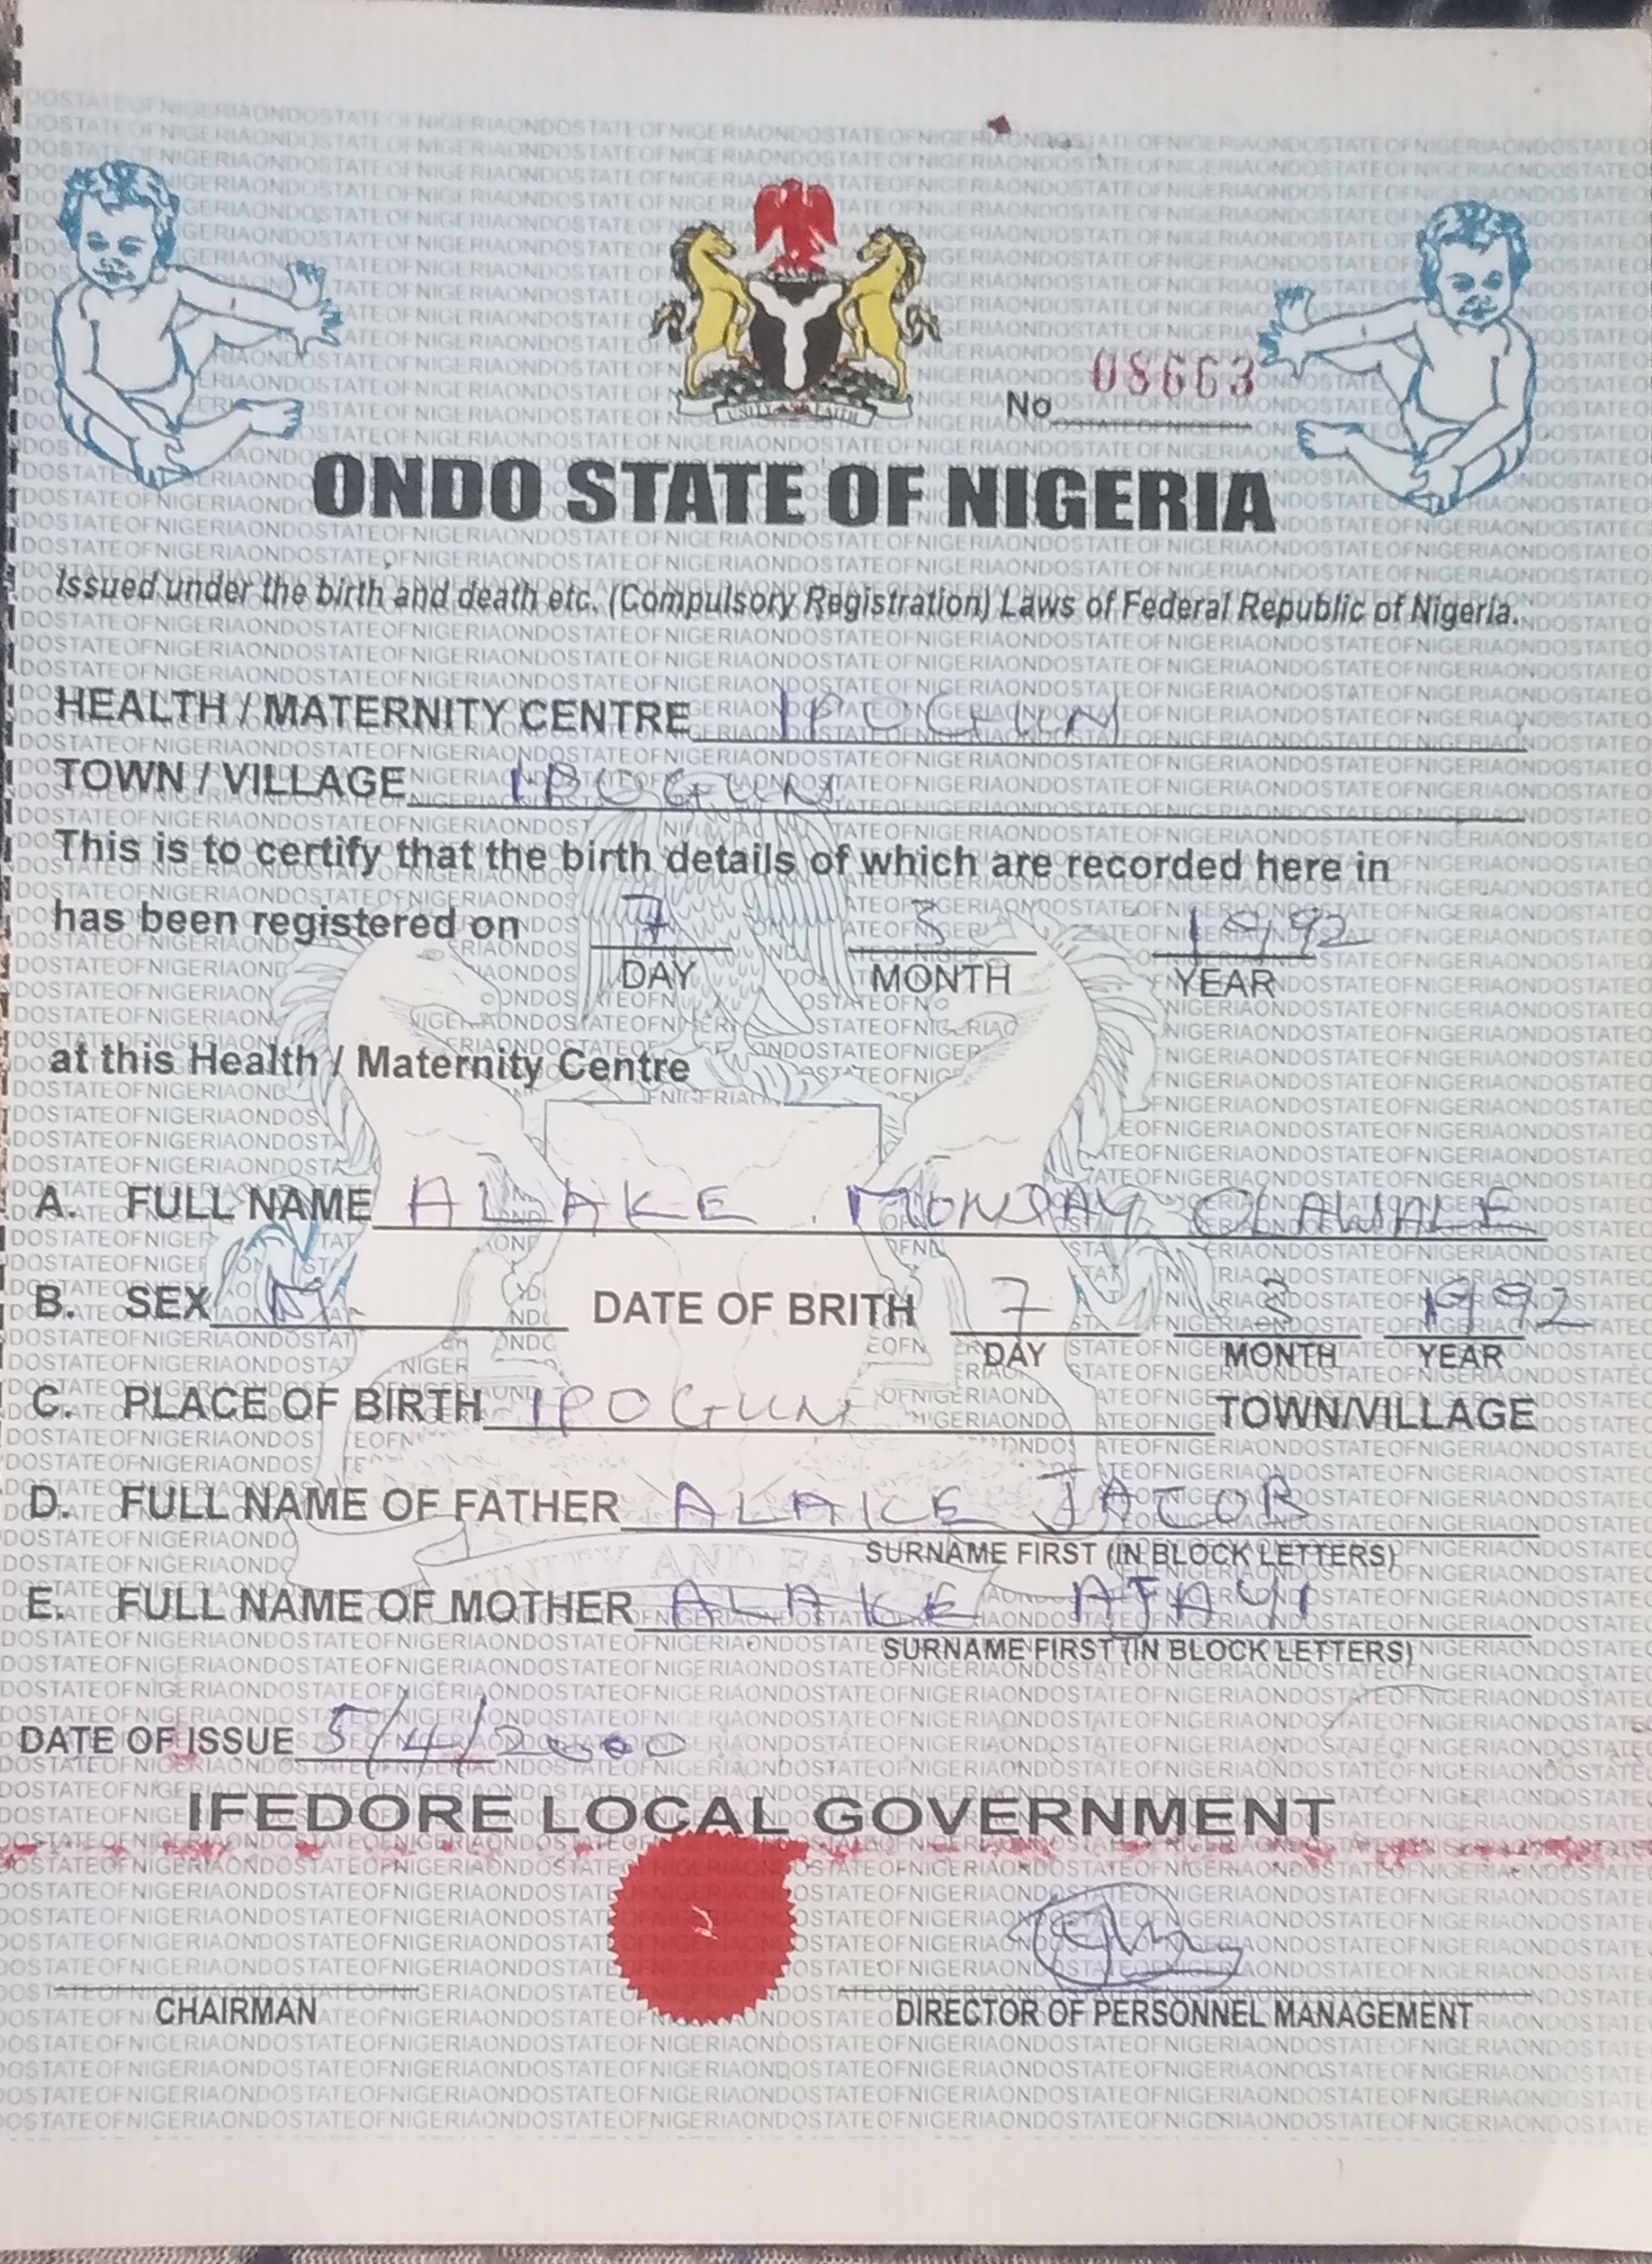 UNITY AND FAITH
No 08663
ONDO STATE OF NIGERIA
Issued under the birth and death etc. (Compulsory Registration) Laws of Federal Republic of Nigeria.
HEALTH / MATERNITY CENTRE IPOGUN
TOWN / VILLAGE IPOGUN
This is to certify that the birth details of which are recorded here in
has been registered on 7 3 1992
DAY MONTH YEAR
at this Health / Maternity Centre
A. FULL NAME ALAKE MONDAY OLAWALE
B. SEX M DATE OF BRITH 7 3 1992
DAY MONTH YEAR
C. PLACE OF BIRTH IPOGUN TOWN/VILLAGE
D. FULL NAME OF FATHER ALAKE JACOB
SURNAME FIRST (IN BLOCK LETTERS)
E. FULL NAME OF MOTHER ALAKE AJAYI
SURNAME FIRST (IN BLOCK LETTERS)
DATE OF ISSUE 5/4/2000
IFEDORE LOCAL GOVERNMENT
CHAIRMAN DIRECTOR OF PERSONNEL MANAGEMENT